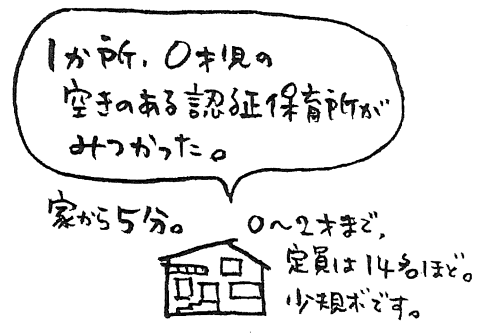 1か所、0才児の
空きのある認証保育所が
みつかった。
家から5分。
0〜2才まで、
定員は14名ほど。
少規ボです。